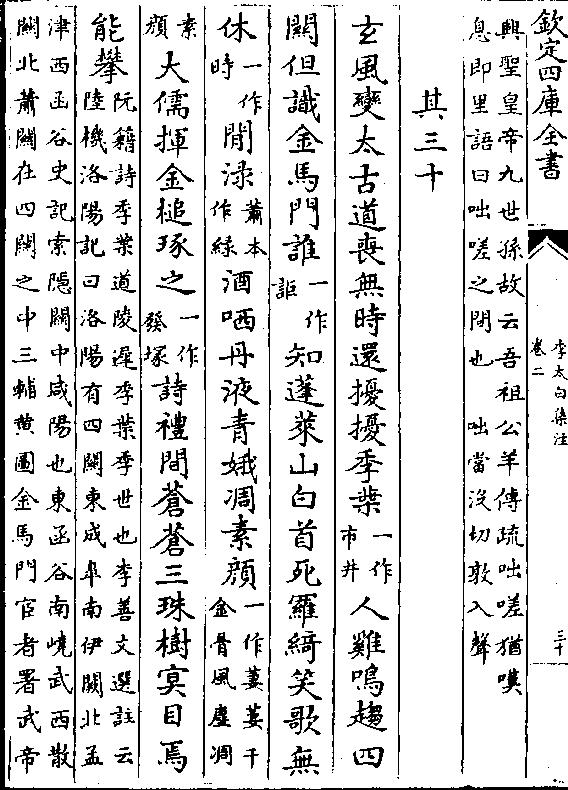 欽定四庫全書
李太白集注
卷二
三十
興聖皇帝九世孫故云吾祖公羊傳疏咄嗟猶嘆
息即里語曰咄嗟之間也 咄當沒切敦入聲
其三十
玄風變太古道喪無時還擾擾季葉一作市井人雞鳴趨四
關但識金馬門誰一作詎知蓬萊山白首死羅綺笑歌無
休一作時閒淥蕭本作緑酒哂丹液青娥凋素顔一作萋萋千金骨風塵凋
素顔大儒揮金槌琢之一作發塚詩禮間蒼蒼三珠樹冥目焉
能攀阮籍詩季葉道陵遲季葉季世也李善文選註云
陸機洛陽記曰洛陽有四關東成臯南伊闕北孟
津西函谷史記索隱關中咸陽也東函谷南嶢武西散
關北蕭關在四關之中三輔黄圖金馬門宦者署武帝